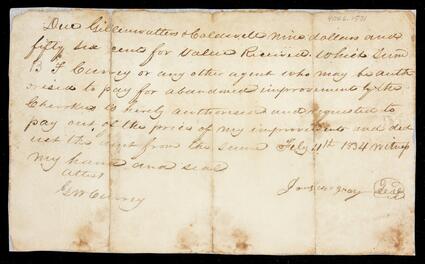 4026.1571
Due Gillenwatters & Caldwell nine dollars and
fifty six cent for Value Received which Sum
B F Currey or any other agent who may be auth
orised to pay for abandoned improvements by the
Cherokee is hereby authorised and requested to
pay out of the price of my improvements and ded
uct the amt from the same Feby 4th 1834 witness
my hand and seal
attest
Seal